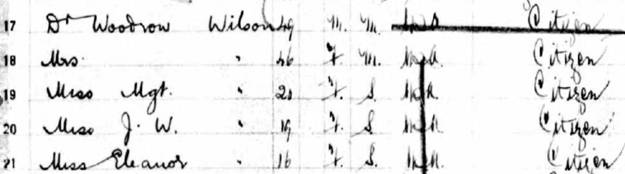 17 Dr Woodrow Wilson 49 M. M. Citizen
18 Mrs. " 46 F. M. Citizen
19 Miss Mgt. " 20 F. S. Citizen
20 Miss J. W. " 19 F. S. Citizen
21 Miss Eleanor " 16 F. S. Citizen